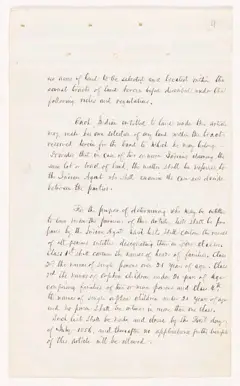 no acres of land to be selected and located within the
several tracts of land herein before described under the
following rules and regulations.
Each Indian entitled to land under this article
may make his own selection of any land within the tract
reserved herein for the band to which he may belong
Provided that in case of two or more Indians claiming the
same lot or tract of land, the matter shall be referred to
the Indian Agent who shall examine the case and decide
between the parties.
For the purpose of determining who may be entitled
to land under the provisions of this article, lists shall be pre
pared by the Indian Agent which lists shall contain the names
of all persons entitled, designating them in four classes.
Class 1st shall contain the names of heads of families, Class
2nd the names of single persons over 21 years of age. Class
3rd the names of orphan children under 21 years of age
comprising families of two or more persons and Class 4th
the names of single orphan children under 21 years of age
and no person shall be in more than one class.
Such lists shall be made and closed by the first day
of July, 1856, and thereafter no applications for the benefits
of this article will be allowed.